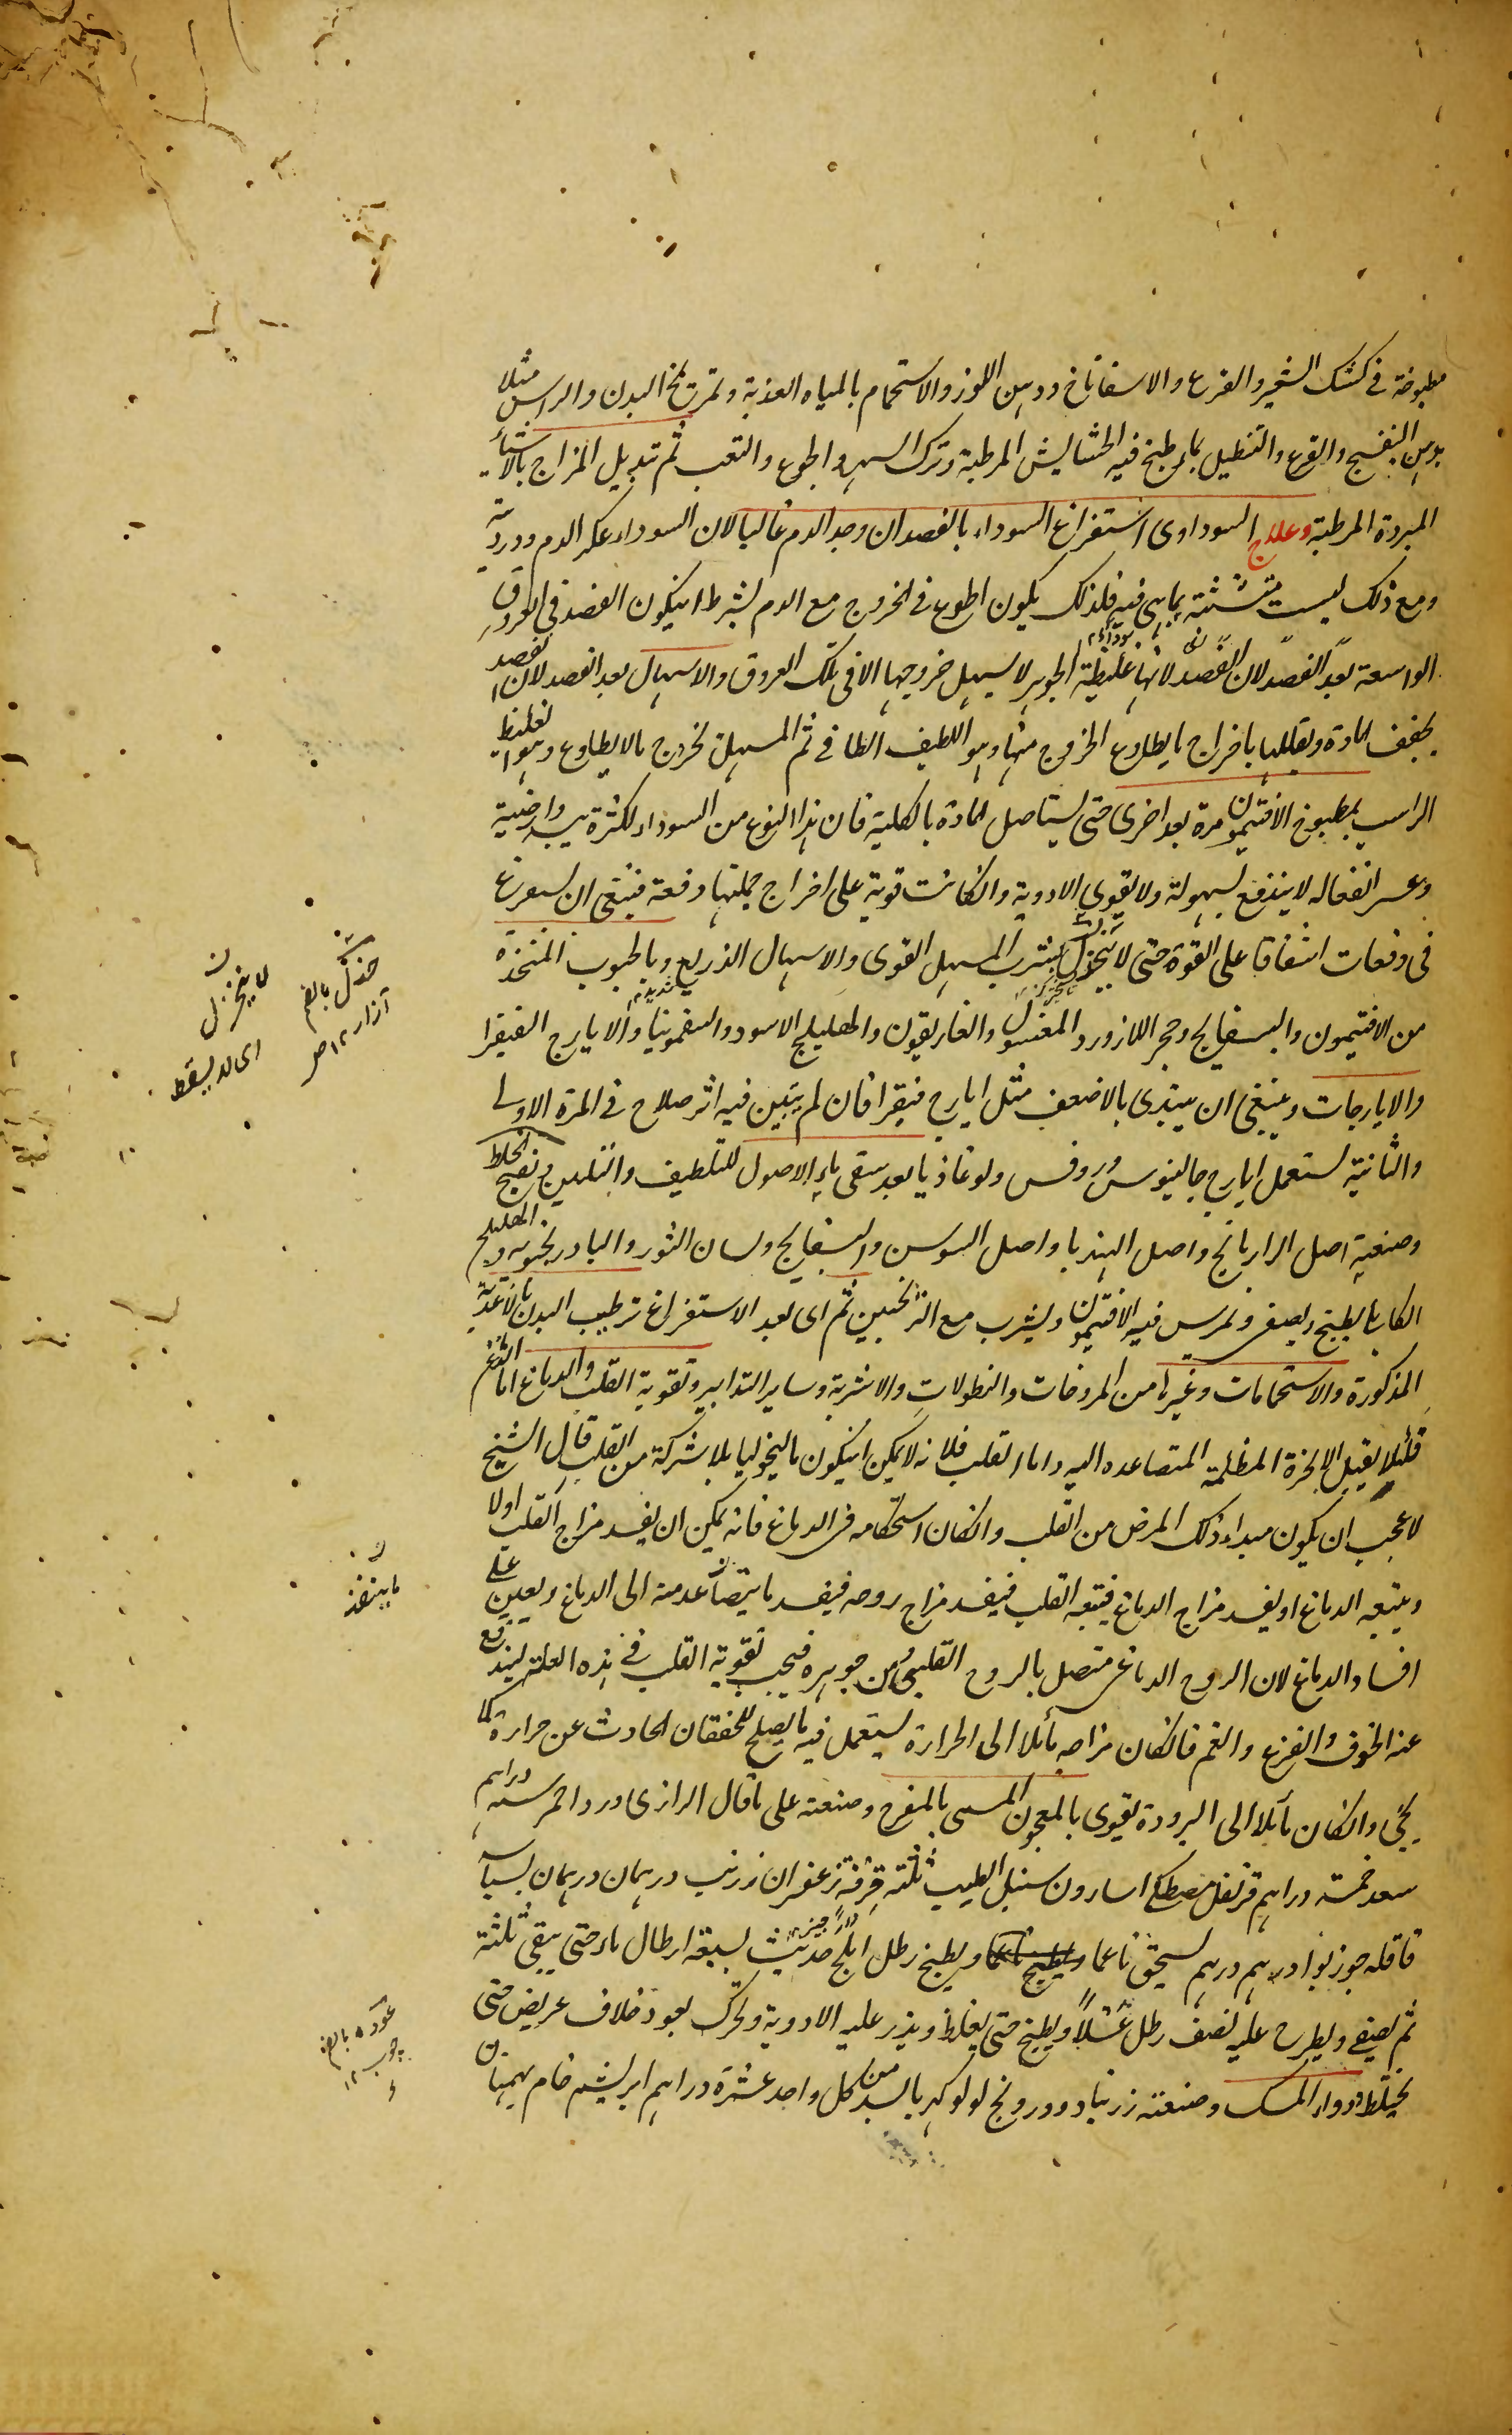 مطبوخة في كشك الشعير والقرع والاسفاناخ ودهن اللوز والاستحمام بالمياه العذبة وتمريخ البدن والراس مثلا
بدهن البنفسج والقرع والتنطيل بماء طبخ فيه الحشايش المرطبة وترك السهر والجوع والتعب ثم تبديل المزاج بالاشياء
المبردة المرطبة وعلاج السوداوى استفراغ السوداء بالفصد ان وجد الدم غالبا لان السوداء عكر الدم ودرديه
ومع ذلك ليست متشبثة بما هى فيه فلذلك يكون اطوع فى الخروج مع الدم بشرط ان يكون الفصد فى العروق
الواسعة لانها غليظة الجوهر لا يسهل خروجها الا فى تلك العروق والاسهال بعد الفصد لان الفصد
يخفف المادة ويقللها باخراج ما يطاوع الخروج منها وهو اللطيف الطافى ثم المسهل يخرج ما لا يطاوع وهو الغليظ
الراسب بمطبوخ الافتيمون مرة بعد اخرى حتى يستاصل المادة بالكلية فان هذا النوع من السوداء لكثرة يبسه وارضية
وعسر انفعاله لا يندفع بسهولة ولا يقوى الادوية وان كانت قوية على اخراج جملتها دفعة فينبغى ان يستفرغ
فى دفعات اشفاقا على القوة حتى لا يتخزل بشرب المسهل القوى والاسهال الذريع وبالحبوب المتخذة
من الافتيمون والبسفايج وحجر اللازورد المغسول والغاريقون والهليلج الاسود والسقمونيا والايارج الفيقرا
والايارجات وينبغى ان يبتدى بالاضعف مثل ايارج فيقرا فان لم يتبين فيه اثر صلاح فى المرة الاولى
والثانية استعمل ايارج جالينوس وروفس ولوغاذيا بعد سقى ماء الاصول للتلطيف والتليين ونضج الخلط
وصنعته اصل الرازيانج واصل الهندبا واصل السوسن والبسفايج ولسان الثور والبادرنجبويه والهليلج
الكابلى يطبخ ويصفى ويمرس فيه الافتيمون ويشرب مع الترنجبين ثم اى بعد الاستفراغ ترطيب البدن بالاغذية
المذكورة والاستحمامات وغيرها من المروخات والنطولات والاشربة وساير التدابير وتقوية القلب والدماغ اما الدماغ
فلئلا يقبل الابخرة المظلمة المتصاعده اليه واما القلب فلانه لا يمكن ان يكون ماليخوليا بلا شركة من القلب قال الشيخ
لا عجب ان يكون مبداء ذلك المرض من القلب وان كان استحكامه فى الدماغ فانه يمكن ان يفسد مزاج القلب اولا
ويتبعه الدماغ او يفسد مزاج الدماغ فيتبعه القلب فيفسد مزاج روحه فيفسد ما يتصاعد منه الى الدماغ ويعين على
افساد الدماغ لان الروح الدماغى متصل بالروح القلبى ومن جوهره فيجب تقوية القلب فى هذه العلة ليندفع
عنه الخوف والفزع والغم فان كان مزاجه مائلا الى الحرارة يستعمل فيه ما يصلح للخفقان الحادث عن حرارة كما
يجئ وان كان مائلا الى البرودة يقوى بالمعجون المسمى بالمفرح وصنعته على ما قال الرازى ورد احمر ستة دراهم
سعد خمسة دراهم قرنفل مصطكى اسارون سنبل الطيب ثلثة قرفة زعفران زرنب درهمان درهمان بسباسه
قاقله جوز بوا درهم درهم يسحق ناعما ويطبخ رطل املج حديث بسبعة ارطال ماء حتى يبقى ثلثة
ثم يصفى ويطرح عليه نصف رطل عسلا ويطبخ حتى يغلظ ويذر عليه الادوية ويحرك بعود خلاف عريض حتى
يختلط ودواء المسك وصنعته زرنباد ودرونج لولو كهربا بسد من كل واحد عشرة دراهم ابريشم خام بهمنان
لا يتخزل
اى لا يسقط